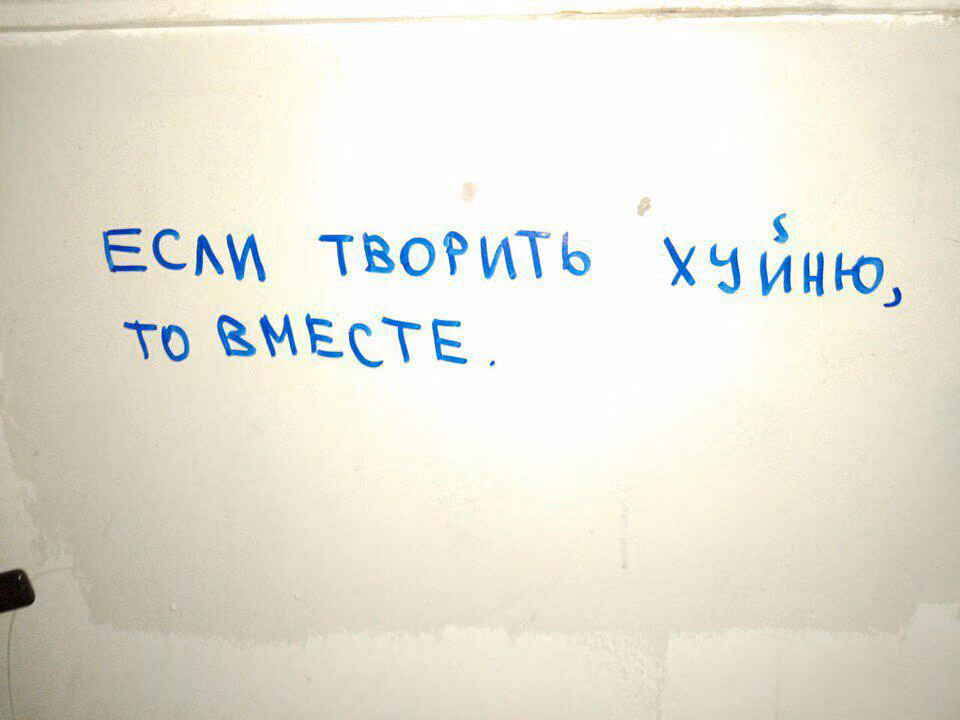 ЕСЛИ ТВОРИТЬ ХУЙНЮ,
ТО ВМЕСТЕ.